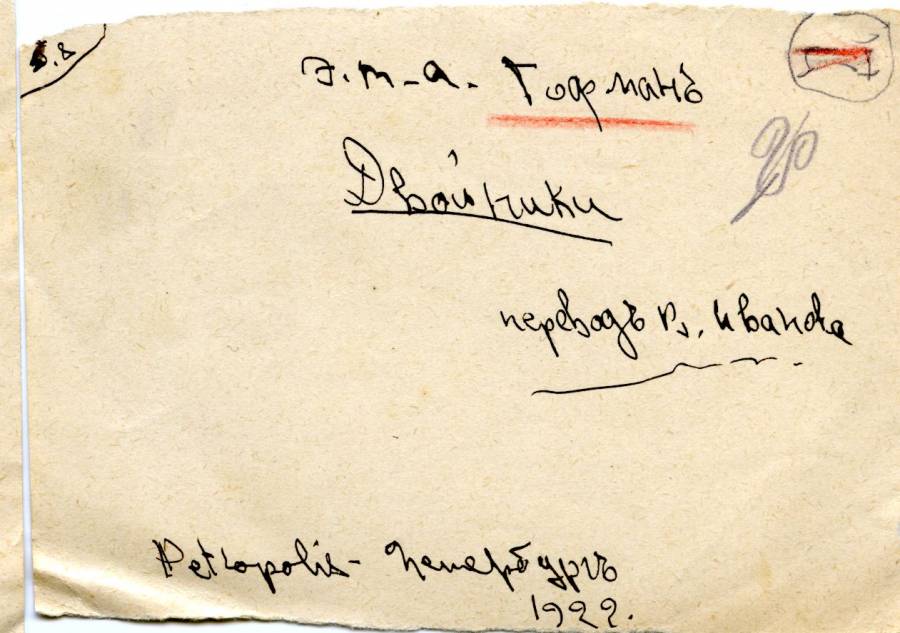 Э. Т. А. Гофманъ
Двойники
переводъ В. Иванова
Petropolis - Петербургъ
1922.